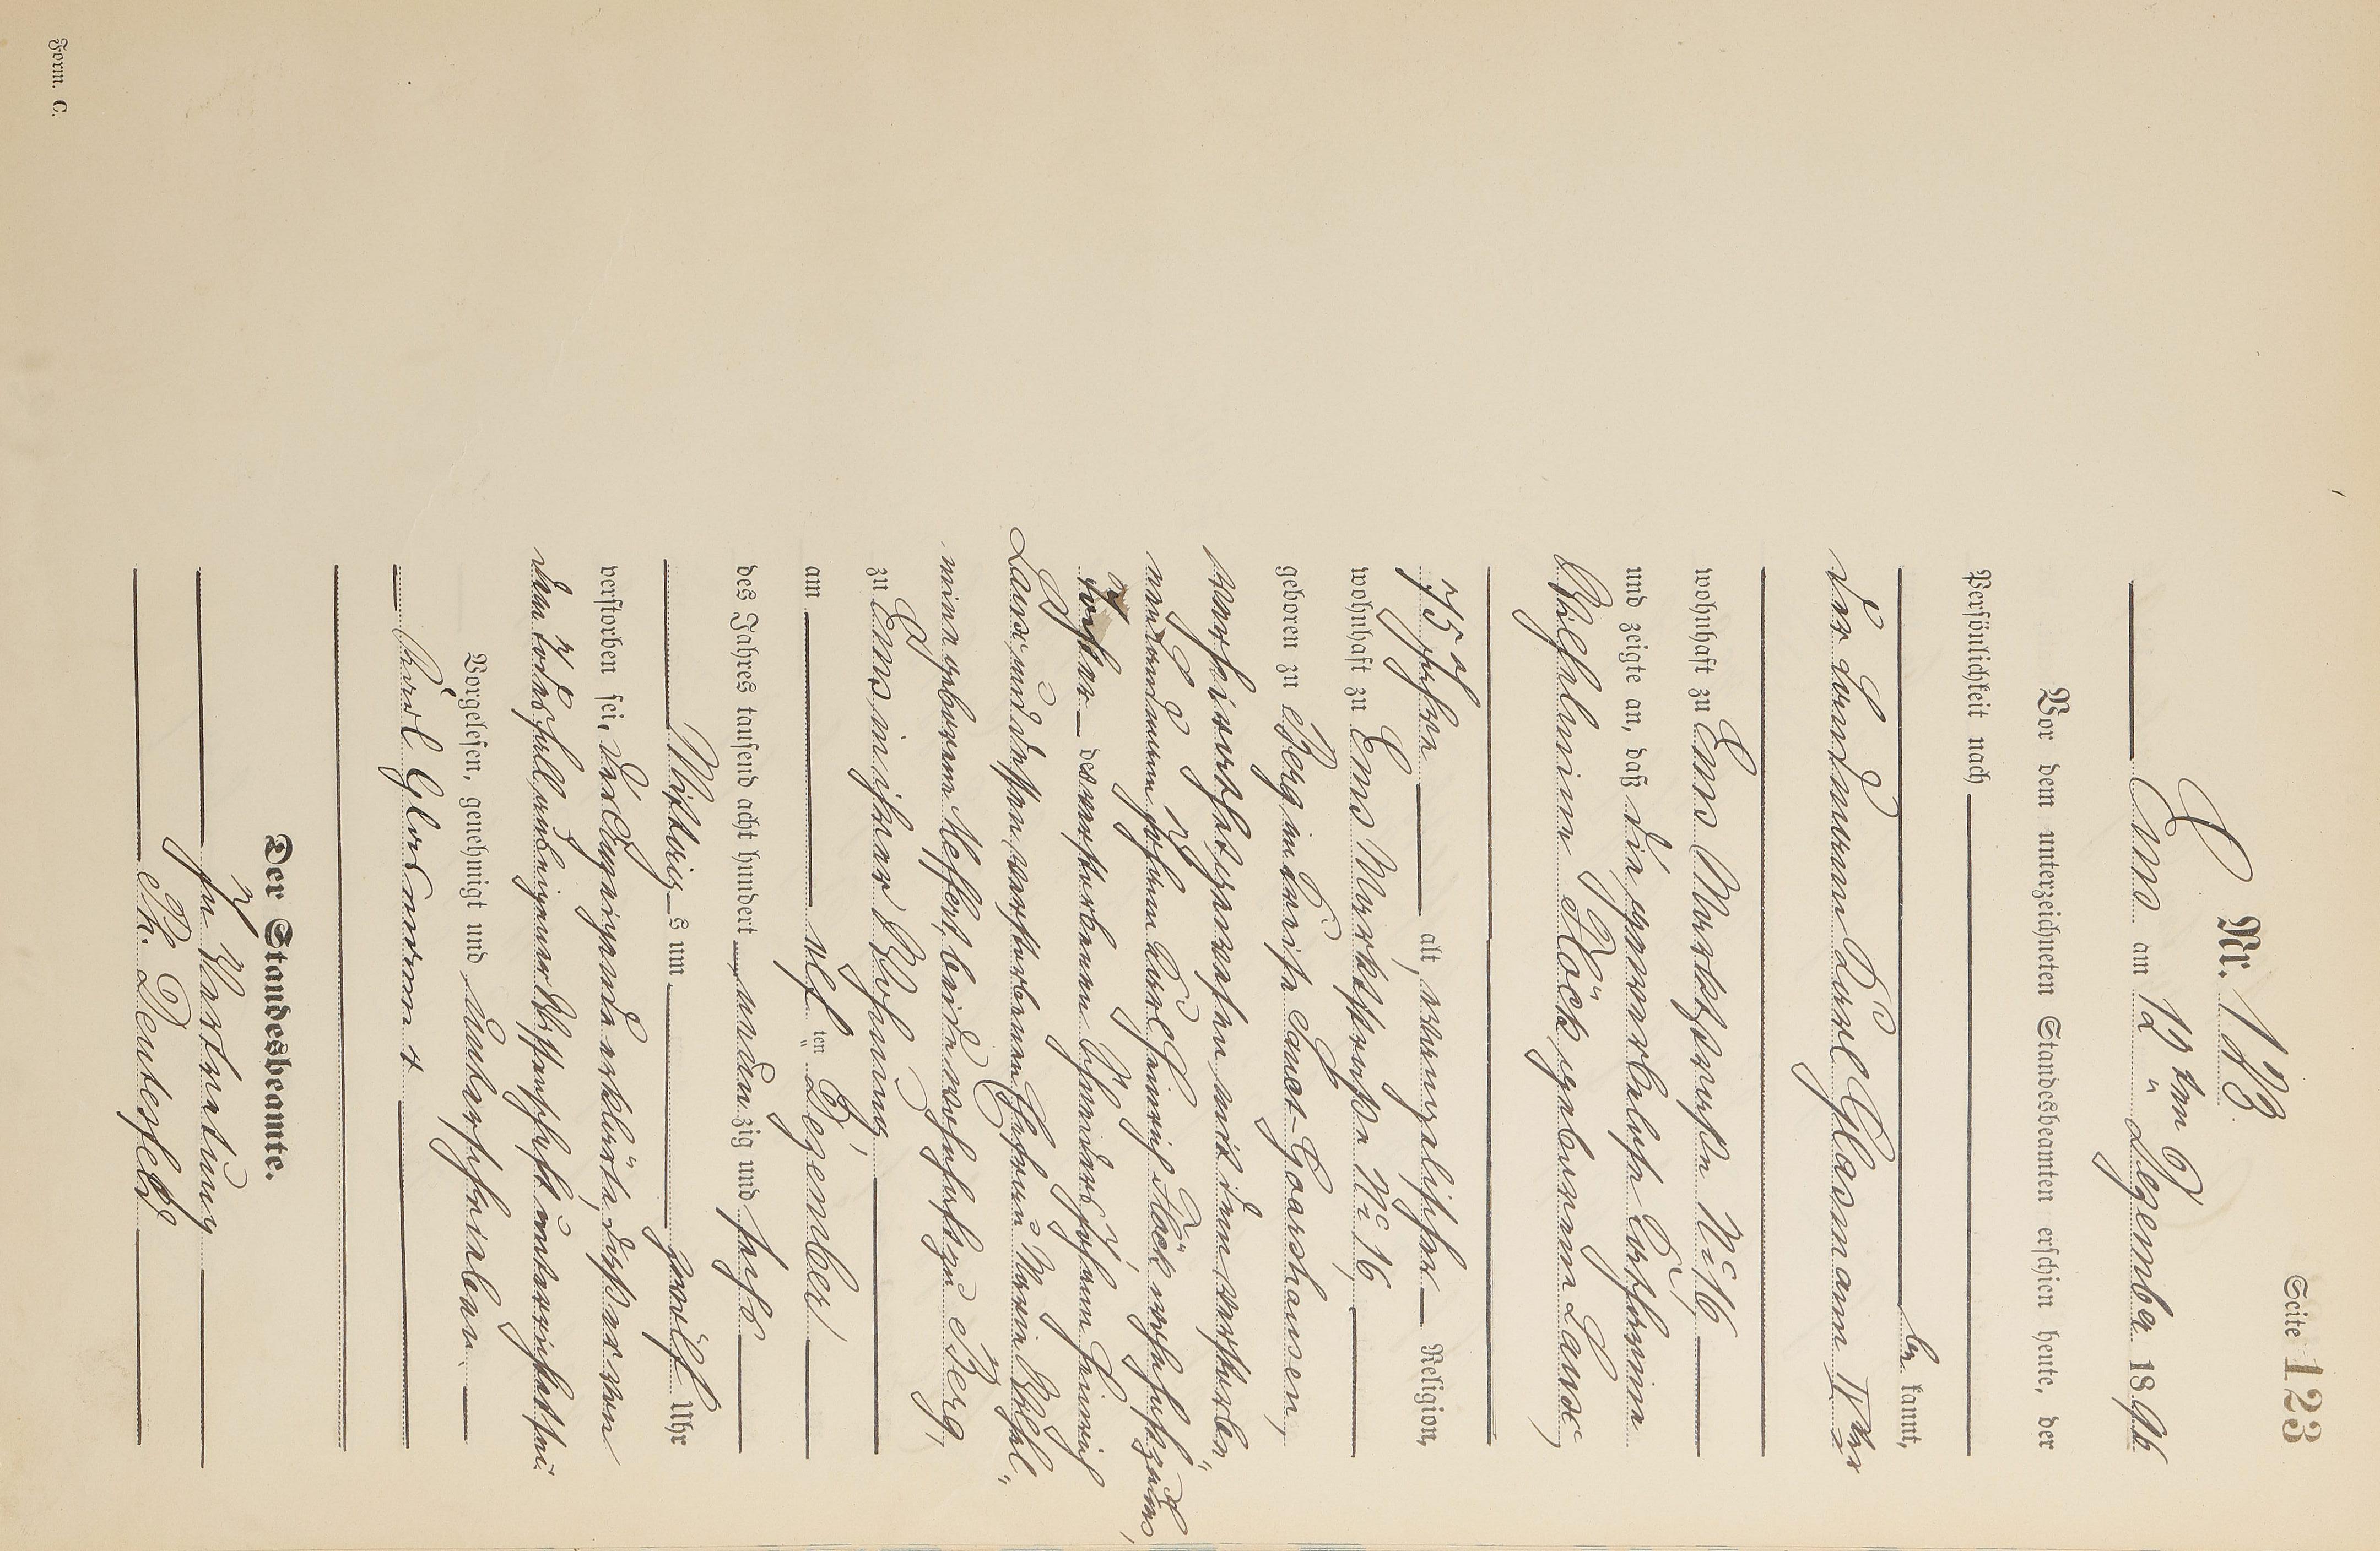 Seite 123
Nr. 123.
Ems am 12ten Dezember 1896
Vor dem unterzeichneten Standesbeamten erschien heute, der
Persönlichkeit nach
be kannt,
der Landmann Karl Glasmann IVter
wohnhaft zu Ems Marktstraße No 16,
und zeigte an, daß die gewerblose Catharina
Wilhelmine Flöck geborene Laux,
75 Jahre alt, evangelischer Religion,
wohnhaft zu Ems Marktstraße No 16,
geboren zu Berg im Kreise Sanct-Goarshausen,
verheirathet gewesen mit dem verstorbe-
nen Landmann Johann Karl Heinrich Flöck wohnhaft zu Ems,
Tochter des verstorbenen Schneiders Johann Heinrich
Laux und dessen verstorbenen Ehefrau Maria Wilhel-
mine geborene Kessler, beide wohnhaft zu Berg,
zu Ems, in ihrer Wohnung
am elf ten Dezember
des Jahres tausend acht hundert neun zig und sechs
Mittags um zwölf Uhr
verstorben sei. Der Anzeigende erklärte, daß er von
dem Todesfall aus eigener Wissenschaft unterrichtet sei.
Vorgelesen, genehmigt und unterschrieben
Karl Glasmann 4
Der Standesbeamte.
In Vertretung
Ph. Deutesfeld
Form. C.